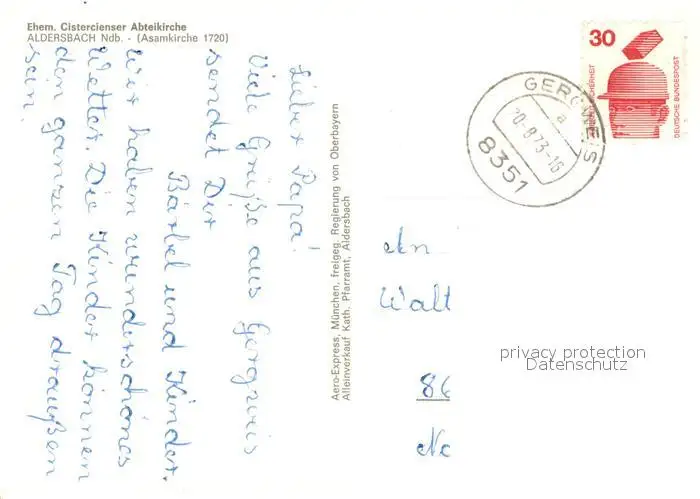 Ehem. Cistercienser Abteikirche
ALDERSBACH Ndb. - (Asamkirche 1720)
Lieber Papa!
Viele Grüße aus Gergweis
sendet Dir
Bärbel und Kinder.
Wir haben wunderschönes
Wetter. Die Kinder können
den ganzen Tag draußen
sein.
Aero-Express, München, freigeg. Regierung von Oberbayern
Alleinverkauf Kath. Pfarramt, Aldersbach
30
SICHERHEIT
DEUTSCHE BUNDESPOST
GERGWEIS
a
20.-8.73-16
8351
An
Walt
86
privacy protection
Datenschutz